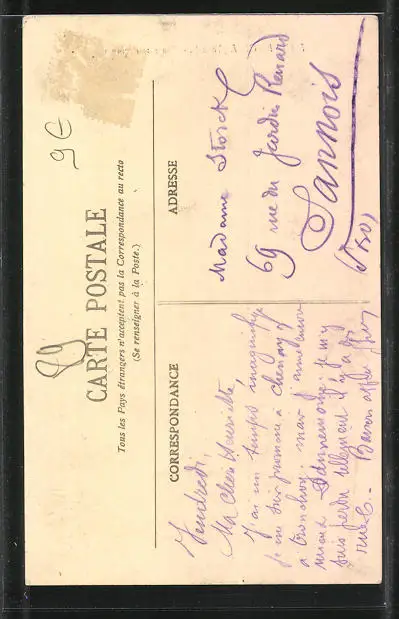 CARTE POSTALE
Tous les Pays étrangers n'acceptent pas la Correspondance au recto
(Se renseigner à la Poste.)
CORRESPONDANCE
ADRESSE
89
9 €
Vendredi,
Ma chère Henriette
J'ai un temps magnifique
je me suis promené à Cheney
à Tronchoy. mais j'aime
mieux Dannemoine. je m'y
suis perdu tellement il y a de
rues. - Bonne
Madame Storck
69 rue du Jardin Renard
Sannois